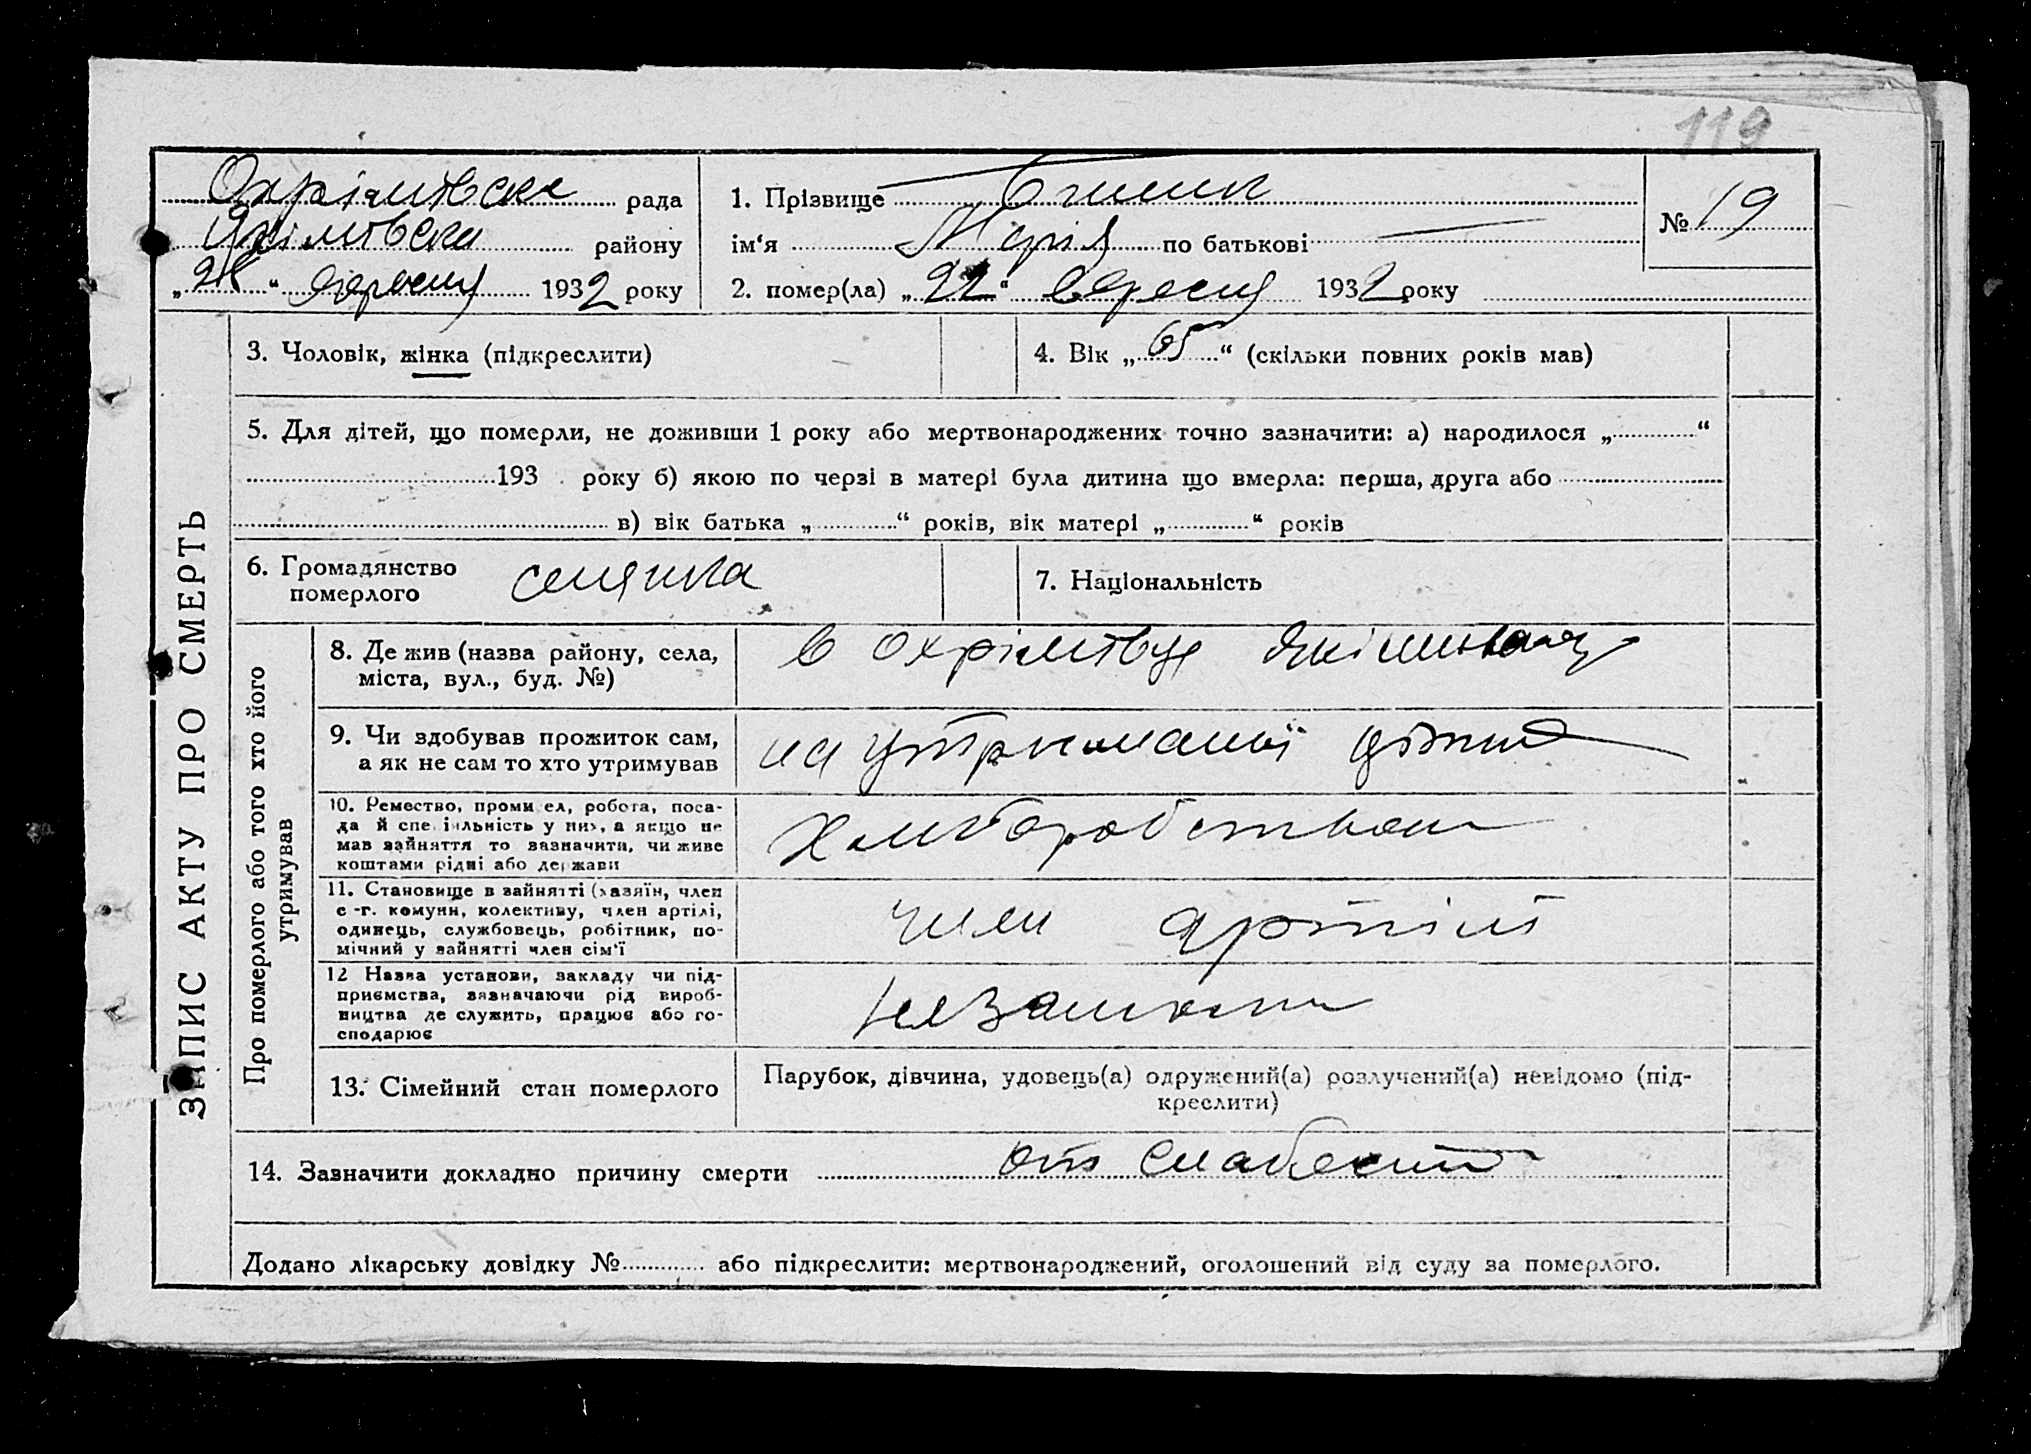 119
Охрімовска рада
Якімовська району
„ “ вересня 1932 року
1. Прізвище
ім‘я Марія по батькові —
2. помер(ла) „22“ вересня 1932 року
№ 19
ЗАПИС АКТУ ПРО СМЕРТЬ
3. Чоловік, жінка (підкреслити)
4. Вік „65“ (скільки повних років мав)
5. Для дітей, що померли, не доживши 1 року або мертвонароджених точно зазначити: а) народилося „ “
193 року б) якою по черзі в матері була дитина що вмерла: перша, друга або
в) вік батька „ “ років, вік матері „ “ років
6. Громадянство
померлого
селянка
7. Національність
Про померлого або того хто його
утримував
8. Де жив (назва району, села,
міста, вул., буд. №)
в Охрімовці
9. Чи здобував прожиток сам,
а як не сам то хто утримував
на утриманні
10. Ремество, промисел, робота, поса-
да й спеціальність у них, а якщо не
мав зайняття то зазначити, чи живе
коштами рідні або держави
Хліборобством
11. Становище в зайнятті (хазяїн, член
с-г. комуни, колективу, член артілі,
одинець, службовець, робітник, по-
мічний у зайнятті член сім‘ї
член артілі
12 Назва установи, закладу чи під-
приємства, зазначаючи рід вироб-
ництва де служить, працює або го-
сподарює
Незаможник
13. Сімейний стан померлого
Парубок, дівчина, удовець(а) одружений(а) розлучений(а) невідомо (під-
креслити)
14. Зазначити докладно причину смерти от слабости
Додано лікарську довідку № або підкреслити: мертвонароджений, оголошений від суду за померлого.